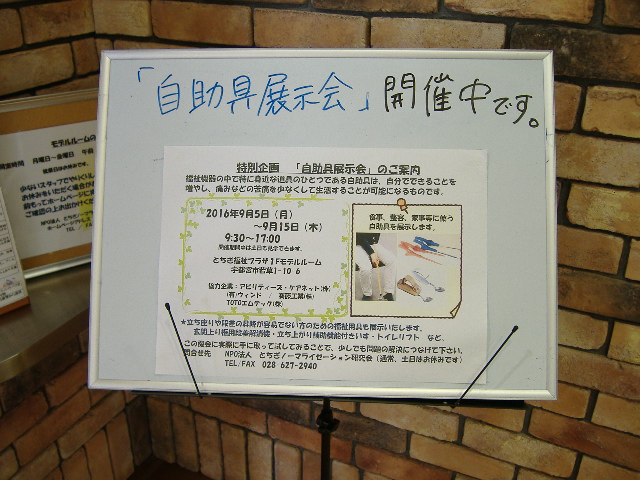 「自助具展示会」開催中です。
特別企画 「自助具展示会」のご案内
福祉機器の中で特に身近な道具のひとつである自助具は、自分でできることを
増やし、痛みなどの苦痛を少なくして生活することが可能になるものです。
2016年9月5日(月)
～9月15日(木)
9:30～17:00
開催期間中は土日も見学できます。
とちぎ福祉プラザ1Fモデルルーム
宇都宮市若草1-10-6
協力企業:アビリティーズ・ケアネット(株)
(有)ウィンド /
TOTOエムテック(株)
食事、整容、家事等に使う
自助具を展示します。
★立ち座りや段差の昇降が容易でない方のための福祉用具も展示いたします。
玄関上り框用段差解消機・立ち上がり補助機能付きいす・トイレリフト など。
この機会に実際に手に取って試してみることで、少しでも問題の解決につなげて下さい。
問合せ先 NPO法人 とちぎノーマライゼーション研究会(通常、土日はお休みです)
TEL/FAX 028-627-2940
モデルルームの
月曜日～金曜日 午前